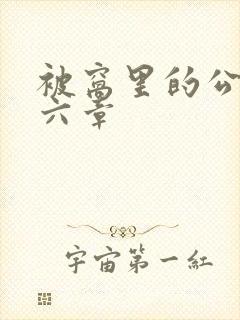 被窝里的公
六章
宇宙第一红